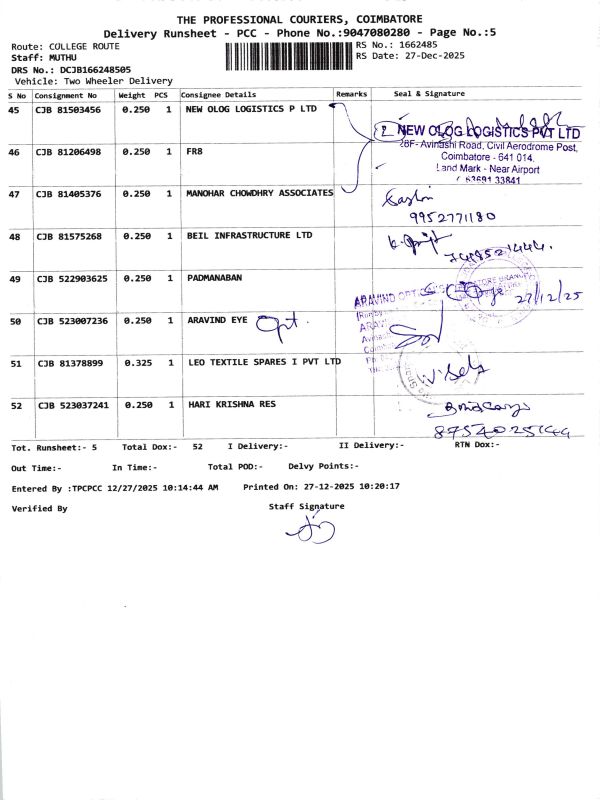 THE PROFESSIONAL COURIERS, COIMBATORE
Delivery Runsheet - PCC - Phone No.:9047080280 - Page No.:5
Route: COLLEGE ROUTE RS No.: 1662485
Staff: MUTHU RS Date: 27-Dec-2025
DRS No.: DCJB166248505
Vehicle: Two Wheeler Delivery
S No Consignment No Weight PCS Consignee Details Remarks Seal & Signature
45 CJB 81503456 0.250 1 NEW OLOG LOGISTICS P LTD
NEW OLOG LOGISTICS PVT LTD
26F- Avinashi Road, Civil Aerodrome Post,
46 CJB 81206498 0.250 1 FR8
Coimbatore - 641 014.
Land Mark - Near Airport
63691 33841
47 CJB 81405376 0.250 1 MANOHAR CHOWDHRY ASSOCIATES
9952771180
48 CJB 81575268 0.250 1 BEIL INFRASTRUCTURE LTD
49 CJB 522903625 0.250 1 PADMANABAN
27/12/25
ARAVIND OPT
50 CJB 523007236 0.250 1 ARAVIND EYE Opt.
51 CJB 81378899 0.325 1 LEO TEXTILE SPARES I PVT LTD
52 CJB 523037241 0.250 1 HARI KRISHNA RES
8754025144
Tot. Runsheet:- 5 Total Dox:- 52 I Delivery:- II Delivery:- RTN Dox:-
Out Time:- In Time:- Total POD:- Delvy Points:-
Entered By :TPCPCC 12/27/2025 10:14:44 AM Printed On: 27-12-2025 10:20:17
Verified By Staff Signature